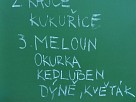 2. RAJČE
KUKUŘICE
3. MELOUN
OKURKA
KEDLUBEN
DÝNĚ, KVĚTÁK